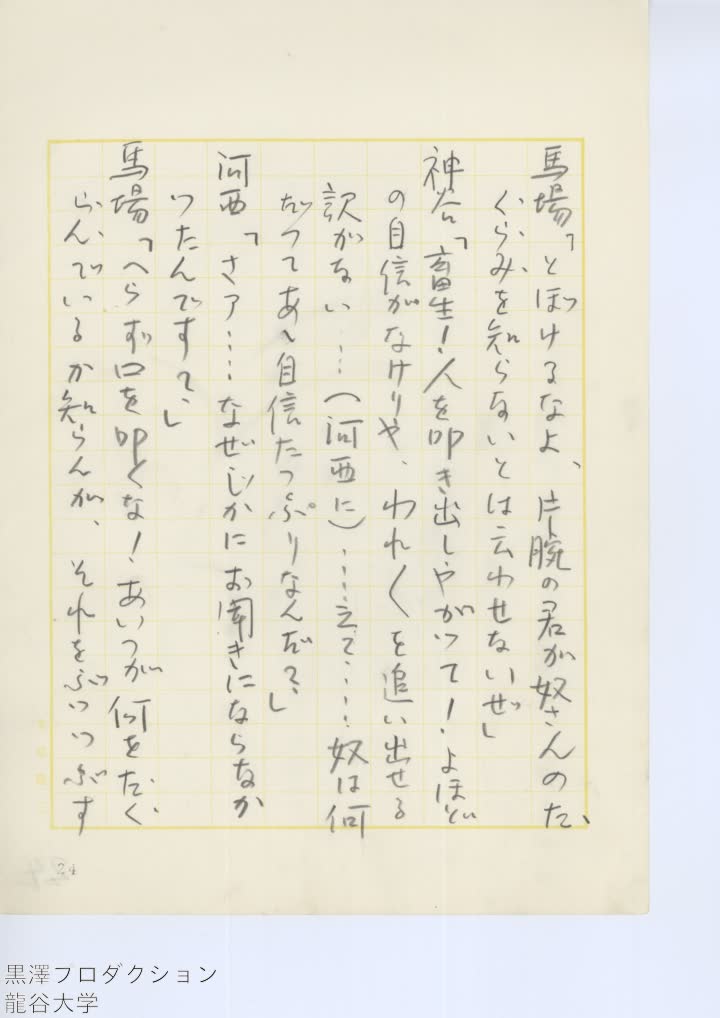 馬場「とぼけるなよ、片腕の君が奴さんのた
くらみを知らないとは云わせないぜ」
神谷「畜生！人を叩き出しやがって！よほど
の自信がなけりや、われ〱を追い出せる
訳がない……（河西に）……え？……奴は何
だってあゝ自信たっぷりなんだ？」
河西「さア……なぜじかにお聞きにならなか
ったんです？」
馬場「へらず口を叩くな！あいつが何をたく
らんでいるか知らんが、それをぶっつぶす
24
黒澤プロダクション
龍谷大学